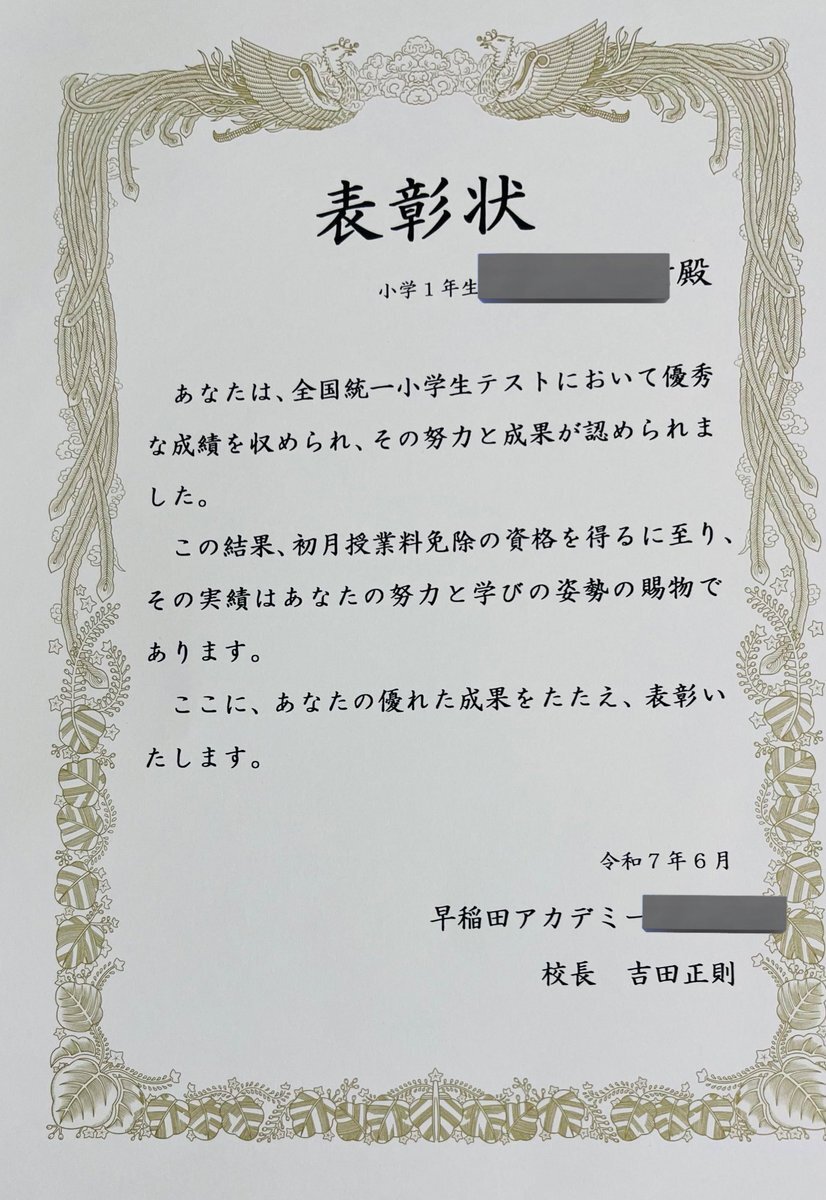 表彰状
小学１年生 殿
あなたは、全国統一小学生テストにおいて優秀
な成績を収められ、その努力と成果が認められま
した。
この結果、初月授業料免除の資格を得るに至り、
その実績はあなたの努力と学びの姿勢の賜物で
あります。
ここに、あなたの優れた成果をたたえ、表彰い
たします。
令和７年６月
早稲田アカデミー
校長　吉田正則